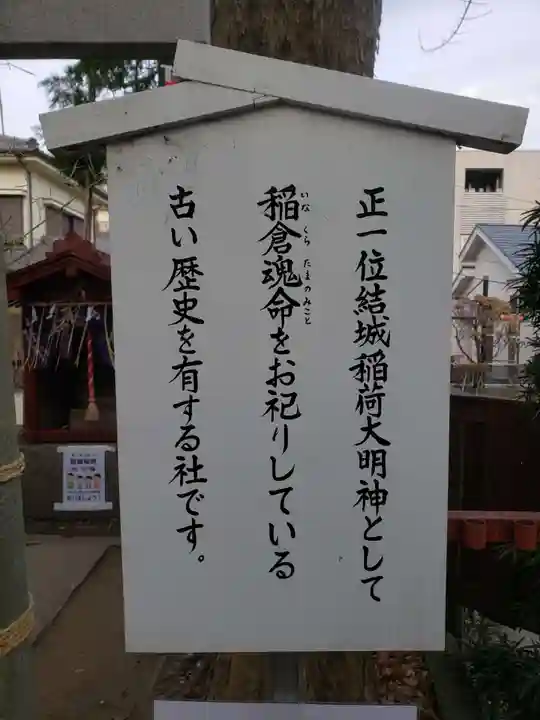 正一位結城稲荷大明神として
稲倉魂命をお祀りしている
いなくらたまのみこと
古い歴史を有する社です。